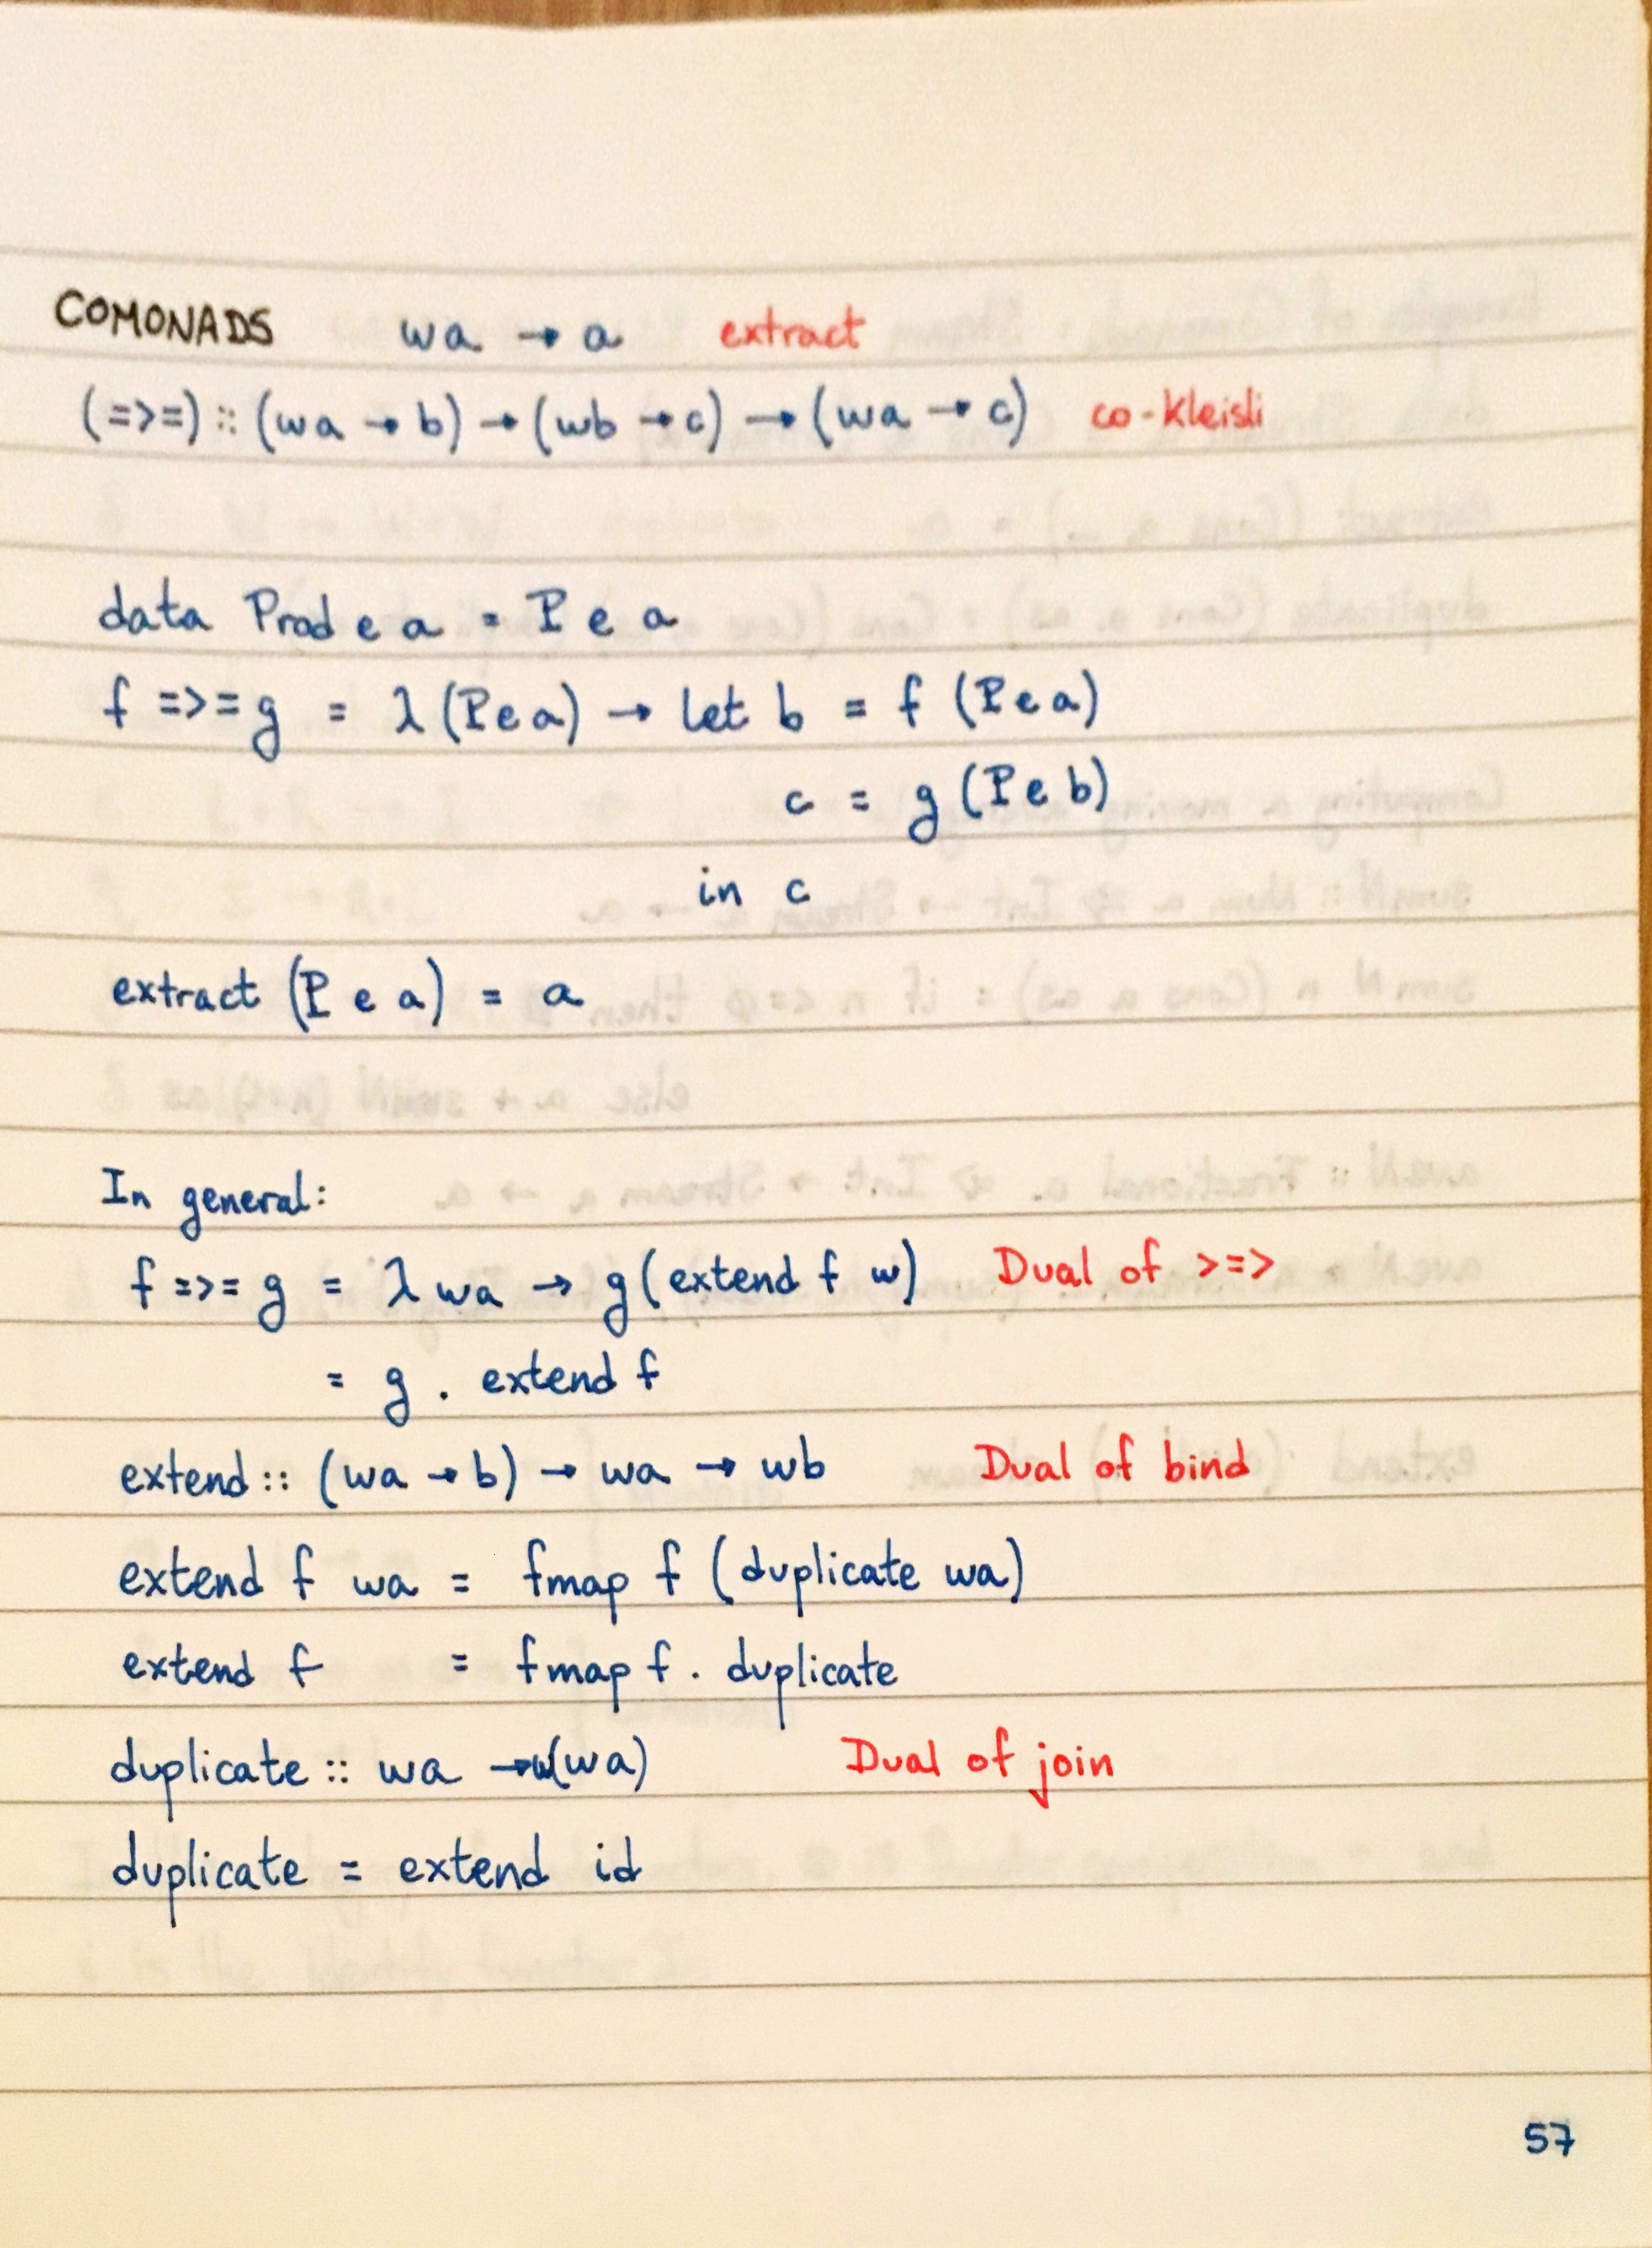 COMONADS wa → a extract
(=>=) :: (wa → b) → (wb → c) → (wa → c) co-Kleisli
data Prod e a = P e a
f =>= g = λ (P e a) → let b = f (P e a)
c = g (P e b)
in c
extract (P e a) = a
In general:
f =>= g = λ wa → g (extend f w) Dual of >=>
= g . extend f
extend :: (wa → b) → wa → wb Dual of bind
extend f wa = fmap f (duplicate wa)
extend f = fmap f . duplicate
duplicate :: wa → w(wa) Dual of join
duplicate = extend id
57